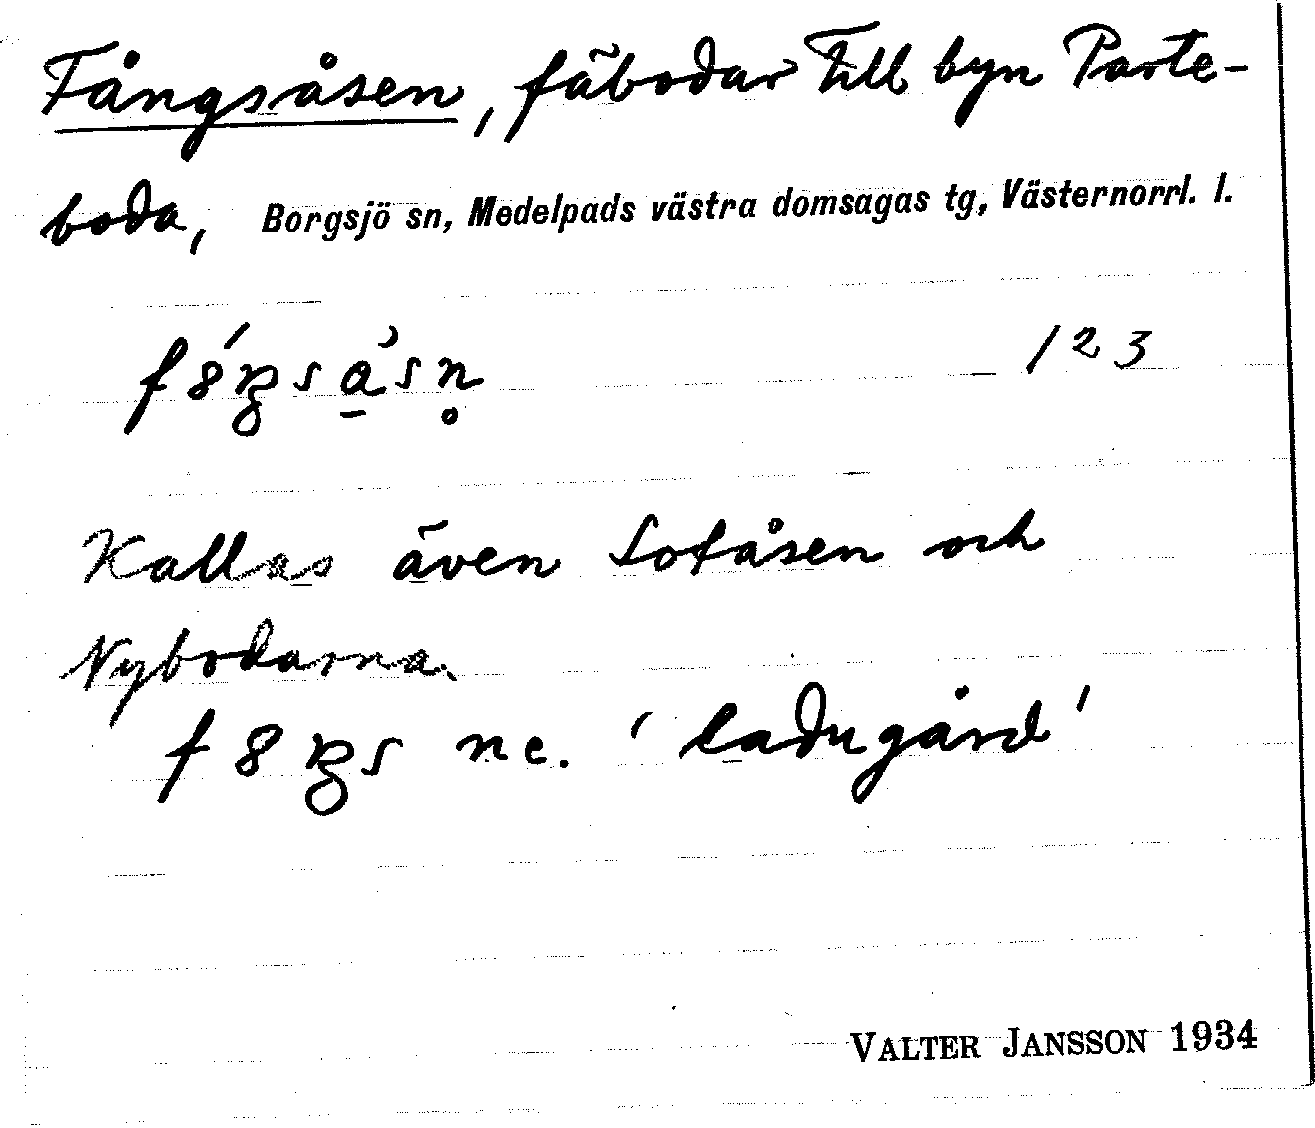 Fångsåsen, fäbodar till byn Parte-
boda, Borgsjö sn, Medelpads västra domsagas tg, Västernorrl. l.
123
Kallas även Lofåsen och
Nybodarna.
ne. 'ladugård'
VALTER JANSSON 1934